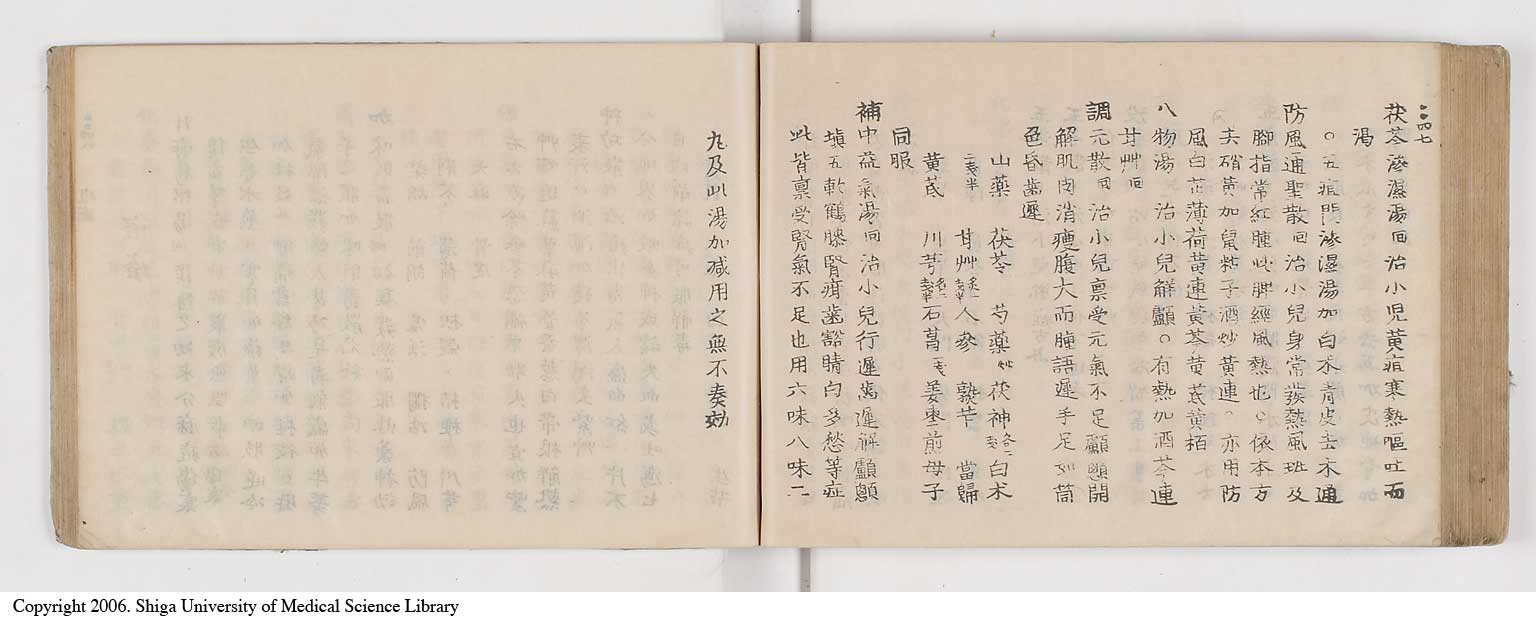 二四七
茯苓滲濕湯 回 治小児黄疸寒熱嘔吐而
渇
○五疸門滲濕湯加白朮青皮去木通
防風通聖散 回 治小児身常發熱風班及
腳指常紅腫此脾經風熱也○依本方
去硝黄加鼠粘子酒炒黄連○亦用防
風白芷薄荷黄連黄芩黄芪黄栢
八物湯 治小兒解顱○有熱加酒芩連
甘艸 回
調元散 回 治小兒禀受元氣不足顱顖開
解肌肉消瘦腹大而腫語遲手足如筒
色昏齒遲
山藥 茯苓 芍藥炒 茯神各二 白朮
二戔半 甘艸 人參 熟芐 當歸
黄芪 川芎各二戔半 石菖二戔 姜枣煎母子
同服
補中益氣湯 回 治小兒行遲齒遲解顱顖
塡五軟鶴膝腎疳齒豁睛白多愁等症
此皆禀受腎氣不足也用六味八味二
九及此湯加减用之無不奏効
Copyright 2006. Shiga University of Medical Science Library